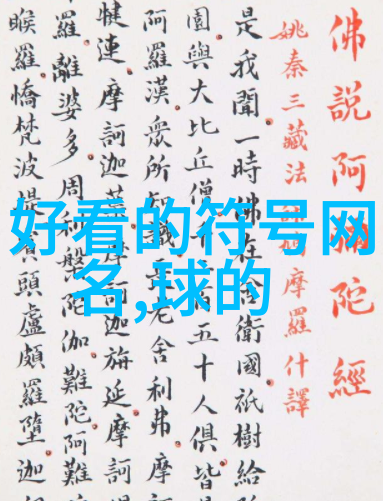 好看的符号网
名,球的
佛說阿彌陀經
姚秦三藏法師鳩摩羅什譯
是我聞一時佛在舍衛國祇樹給
園與大比丘僧千二百五十人俱皆
阿羅漢眾所知識長老舍利弗摩
犍連摩訶迦葉摩訶迦旃延摩訶
羅離婆多周利槃陀伽難陀阿難
睺羅憍梵波提賓頭盧頗羅墮迦